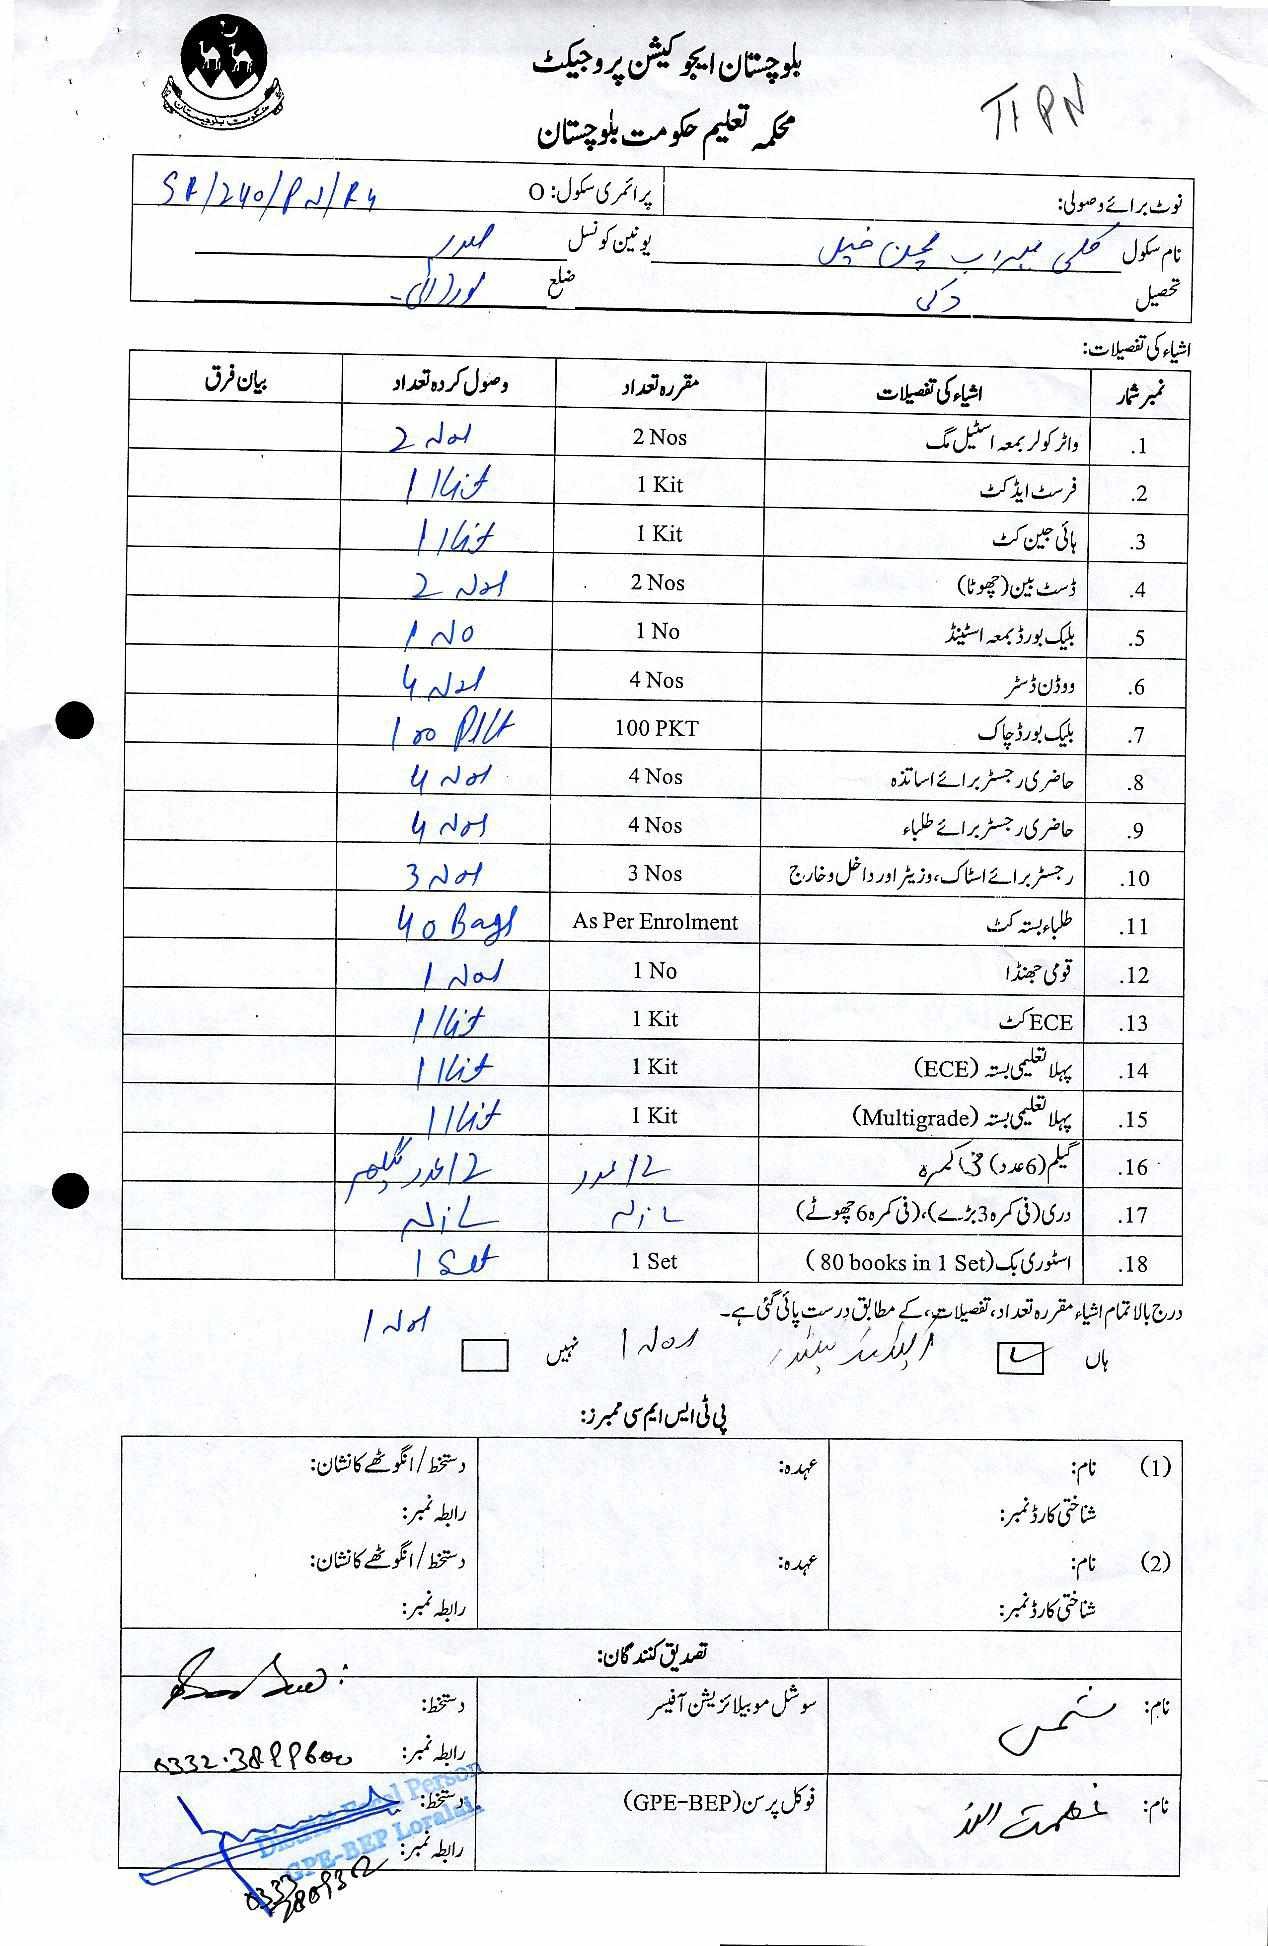 حکومت بلوچستان
بلوچستان ایجوکیشن پروجیکٹ
محکمہ تعلیم حکومت بلوچستان
نوٹ برائے وصولی: پرائمری سکول: O
نام سکول کلی یونین کونسل صدر
تحصیل دکی ضلع لورالائی
اشیاء کی تفصیلات:
نمبر شمار اشیاء کی تفصیلات مقررہ تعداد وصول کردہ تعداد بیان فرق
1. واٹر کولر بمعہ اسٹیل مگ 2 Nos 2 Nos
2. فرسٹ ایڈ کٹ 1 Kit 1 Kit
3. ہائی جین کٹ 1 Kit 1 Kit
4. ڈسٹ بین (چھوٹا) 2 Nos 2 Nos
5. بلیک بورڈ بمعہ اسٹینڈ 1 No 1 No
6. ووڈن ڈسٹر 4 Nos 4 Nos
7. بلیک بورڈ چاک 100 PKT 100 PKT
8. حاضری رجسٹر برائے اساتذہ 4 Nos 4 Nos
9. حاضری رجسٹر برائے طلباء 4 Nos 4 Nos
10. رجسٹر برائے اسٹاک، وزیٹر اور داخل و خارج 3 Nos 3 Nos
11. طلباء بستہ کٹ As Per Enrolment 40 Bags
12. قومی جھنڈا 1 No 1 Nos
13. ECE کٹ 1 Kit 1 Kit
14. پہلا تعلیمی بستہ (ECE) 1 Kit 1 Kit
15. پہلا تعلیمی بستہ (Multigrade) 1 Kit 1 Kit
16. گیلم (6 عدد) فی کمرہ 12 عدد 12 عدد گیلم
17. دری (فی کمرہ 3 بڑے)، (فی کمرہ 6 چھوٹے)
18. اسٹوری بک (80 books in 1 Set) 1 Set 1 Set
درج بالا تمام اشیاء مقررہ تعداد، تفصیلات، کے مطابق درست پائی گئی ہے۔
1 Nos
ہاں 1 Nos نہیں
پی ٹی ایس ایم سی ممبرز:
(1) نام: عہدہ: دستخط / انگوٹھے کا نشان:
شناختی کارڈ نمبر: رابطہ نمبر:
(2) نام: عہدہ: دستخط / انگوٹھے کا نشان:
شناختی کارڈ نمبر: رابطہ نمبر:
تصدیق کنندگان:
نام: شمس سوشل موبیلائزیشن آفیسر دستخط:
رابطہ نمبر: 0332-3899600
نام: عظمت اللہ فوکل پرسن (GPE-BEP) دستخط:
رابطہ نمبر:
District Focal Person
GPE-BEP Loralai